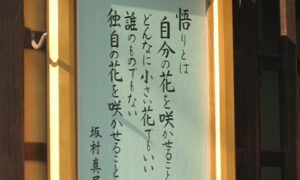 悟りとは
自分の花を咲かせること
どんなに小さい花でもいい
誰のものでもない
独自の花を咲かせること
坂村真民